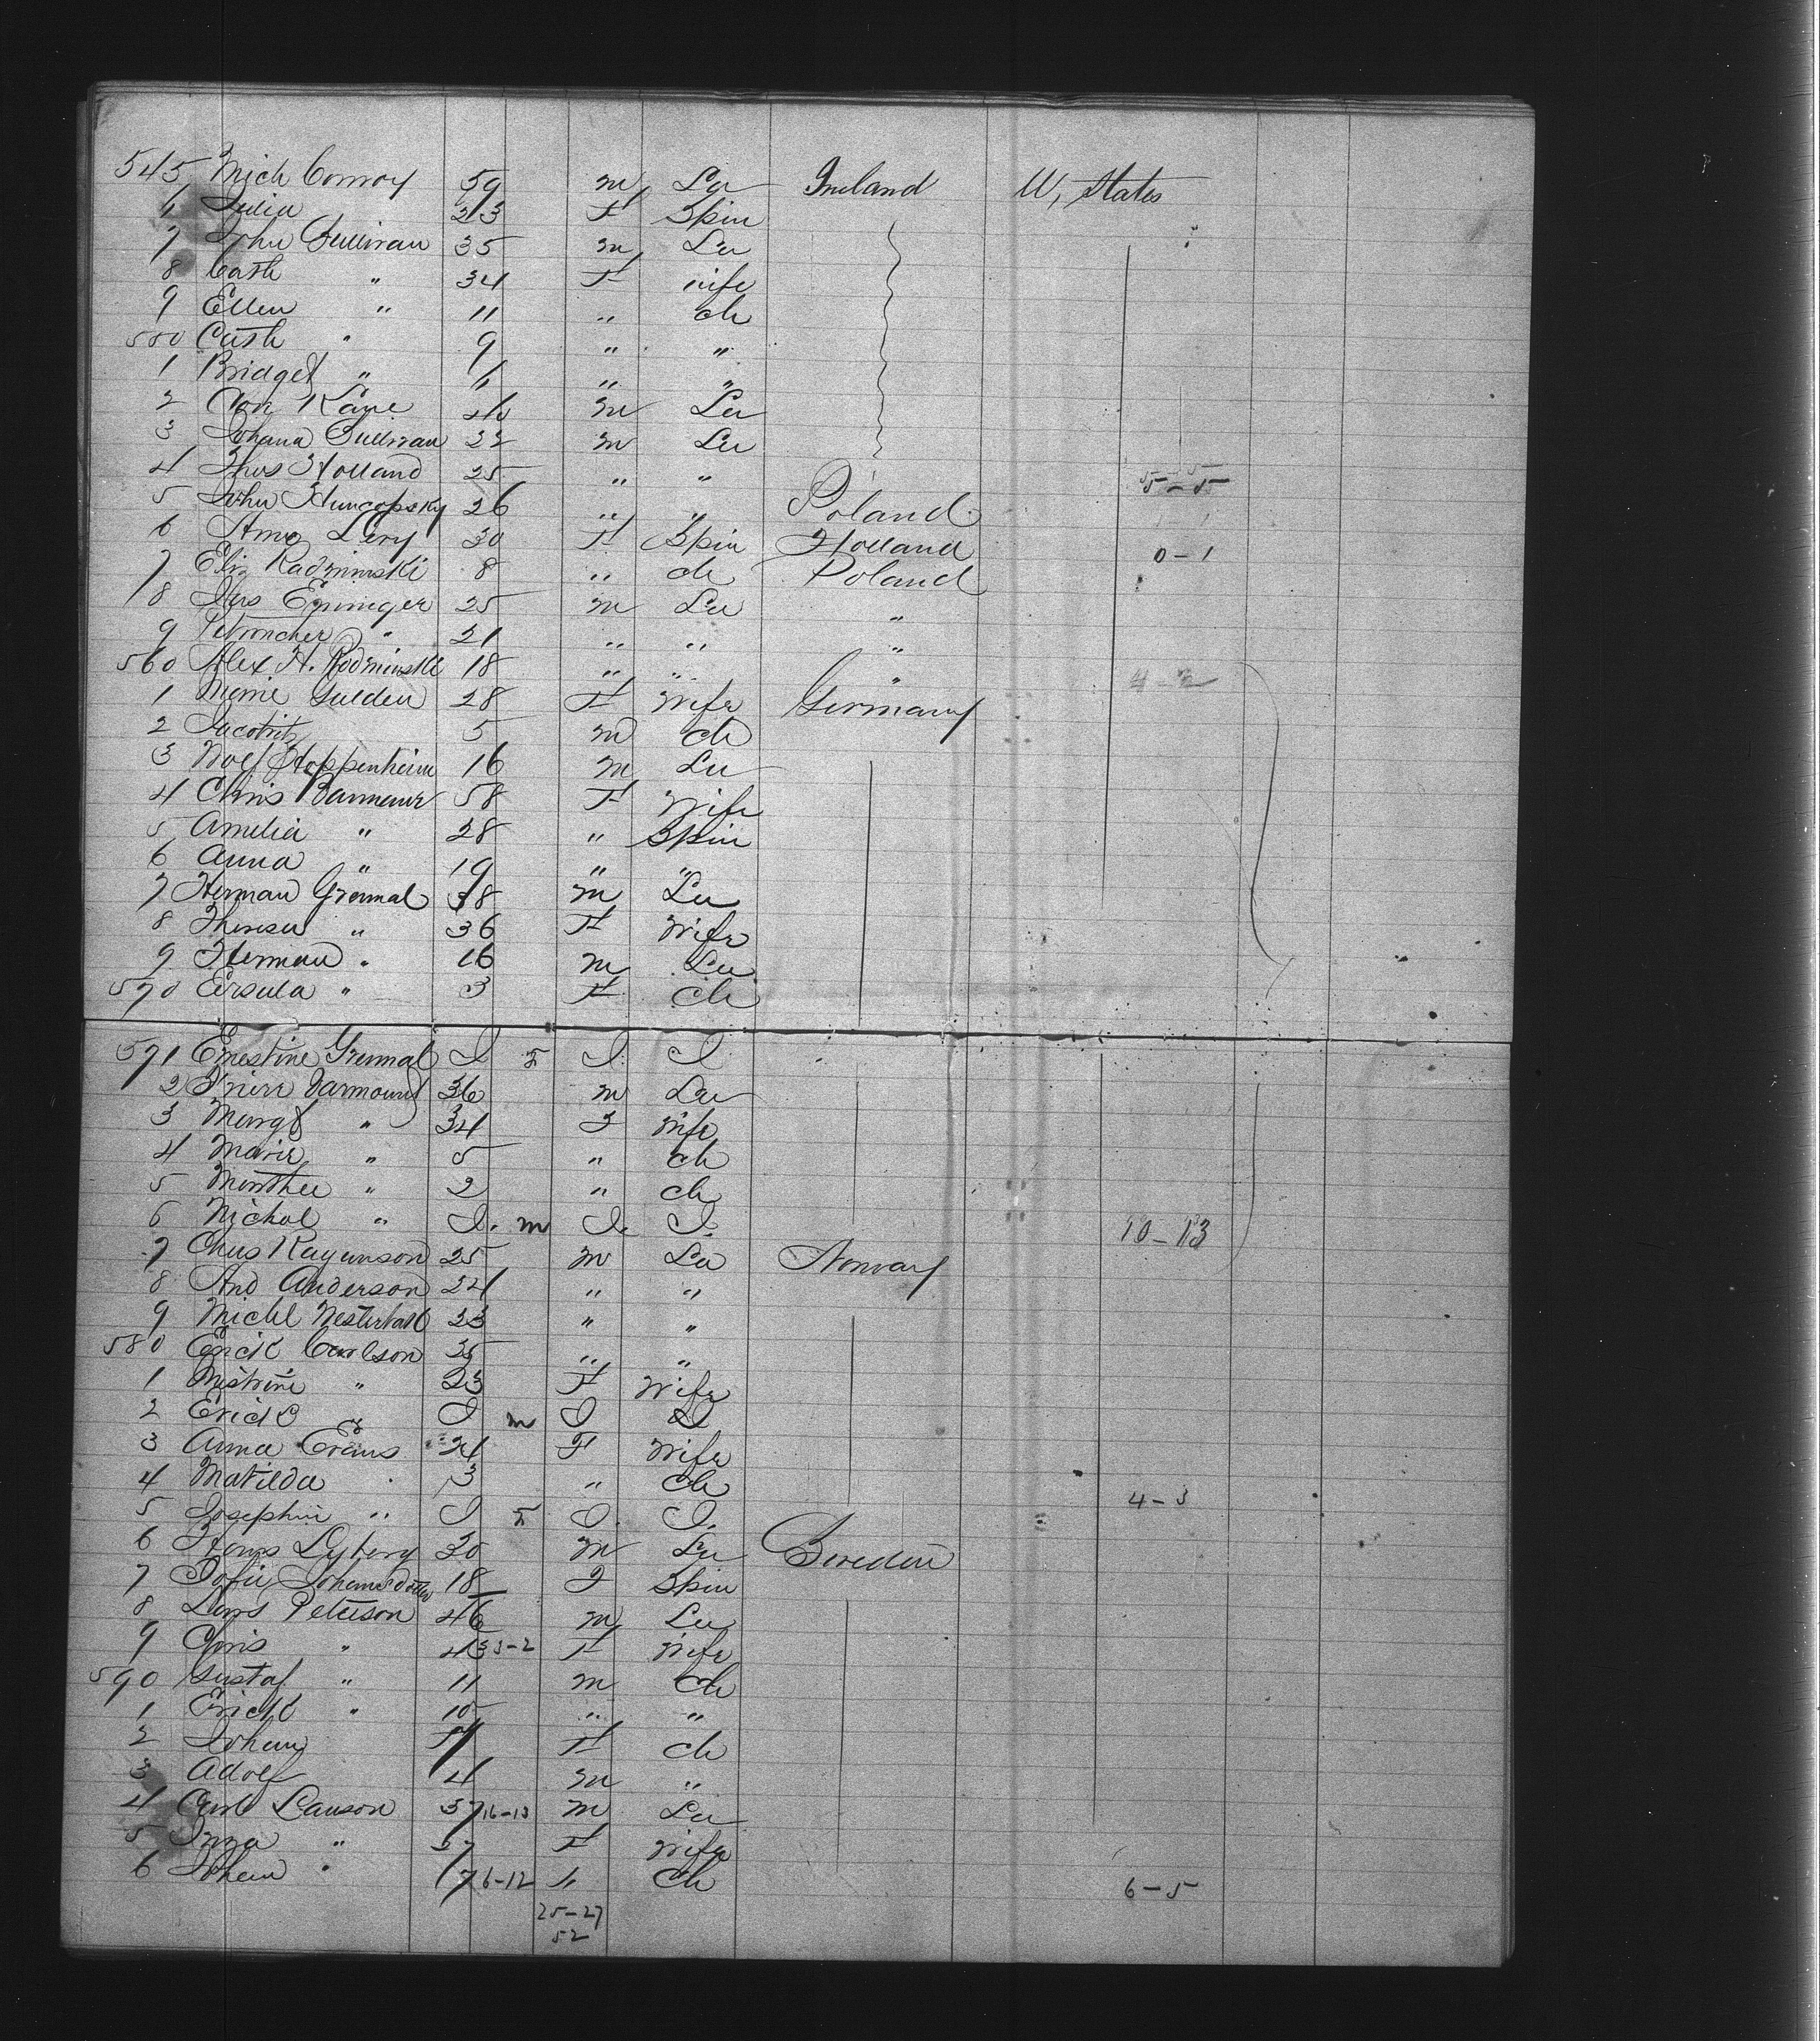 545 Mich Conroy 59 m La Ireland U, States
6 Julia 23 F Spin
7 John Sullivan 35 m La
8 Cath " 34 F wife
9 Ellen " 11 " ch
550 Cath " 9 " "
1 Bridget " " "
2 Con Kane m La
3 Johana Sullivan 22 m La
4 Thos Holland 25 " " 5-5
5 John 26 " " Poland
6 Levy 30 F Spin Holland 0-1
7 Eliz Radminiski 8 " ch Poland
8 25 m La "
9 " 21 " " "
560 Alex H. Radminiski 18 " " " 4-2
1 Gulden 28 F Wife Germany
2 5 m ch
3 Wolf Hoppenheim 16 m La
4 Chris 58 F Wife
5 Amelia " 28 " Spin
6 Anna " 19 " "
7 Herman Gremal 38 m La
8 Theresa " 36 F Wife
9 Herman " 16 m La
570 Ersula " 3 F Ch
571 Ernestine Gremal I F I I
2 Varmount 36 m La
3 Margt " 34 F Wife
4 Marie " 5 " ch
5 " 2 " ch
6 Nichol " I. m I. I. 10-13
7 25 m La Norway
8 And Anderson 24 " "
9 Michl 23 " "
580 Erick Carlson 35 " "
1 " 23 F Wife
2 Erick " I m I I
3 Anna Evans 24 F Wife
4 Matilda 3 " Ch 4-3
5 Josephin " I F I. I.
6 Lyberg 20 m La Sweden
7 Sofie 18 F Spin
8 Lars Peterson 46 m La
9 Chris " 43 3-2 F Wife
590 Gustaf " 11 m Ch
1 Erick " 10 " "
2 Johan 7 F ch
3 Adolf 4 m "
4 Carl Lauson 37 16-13 m La
5 " 37 F Wife
6 Johan " 7 6-12 " Ch 6-5
25-27
52